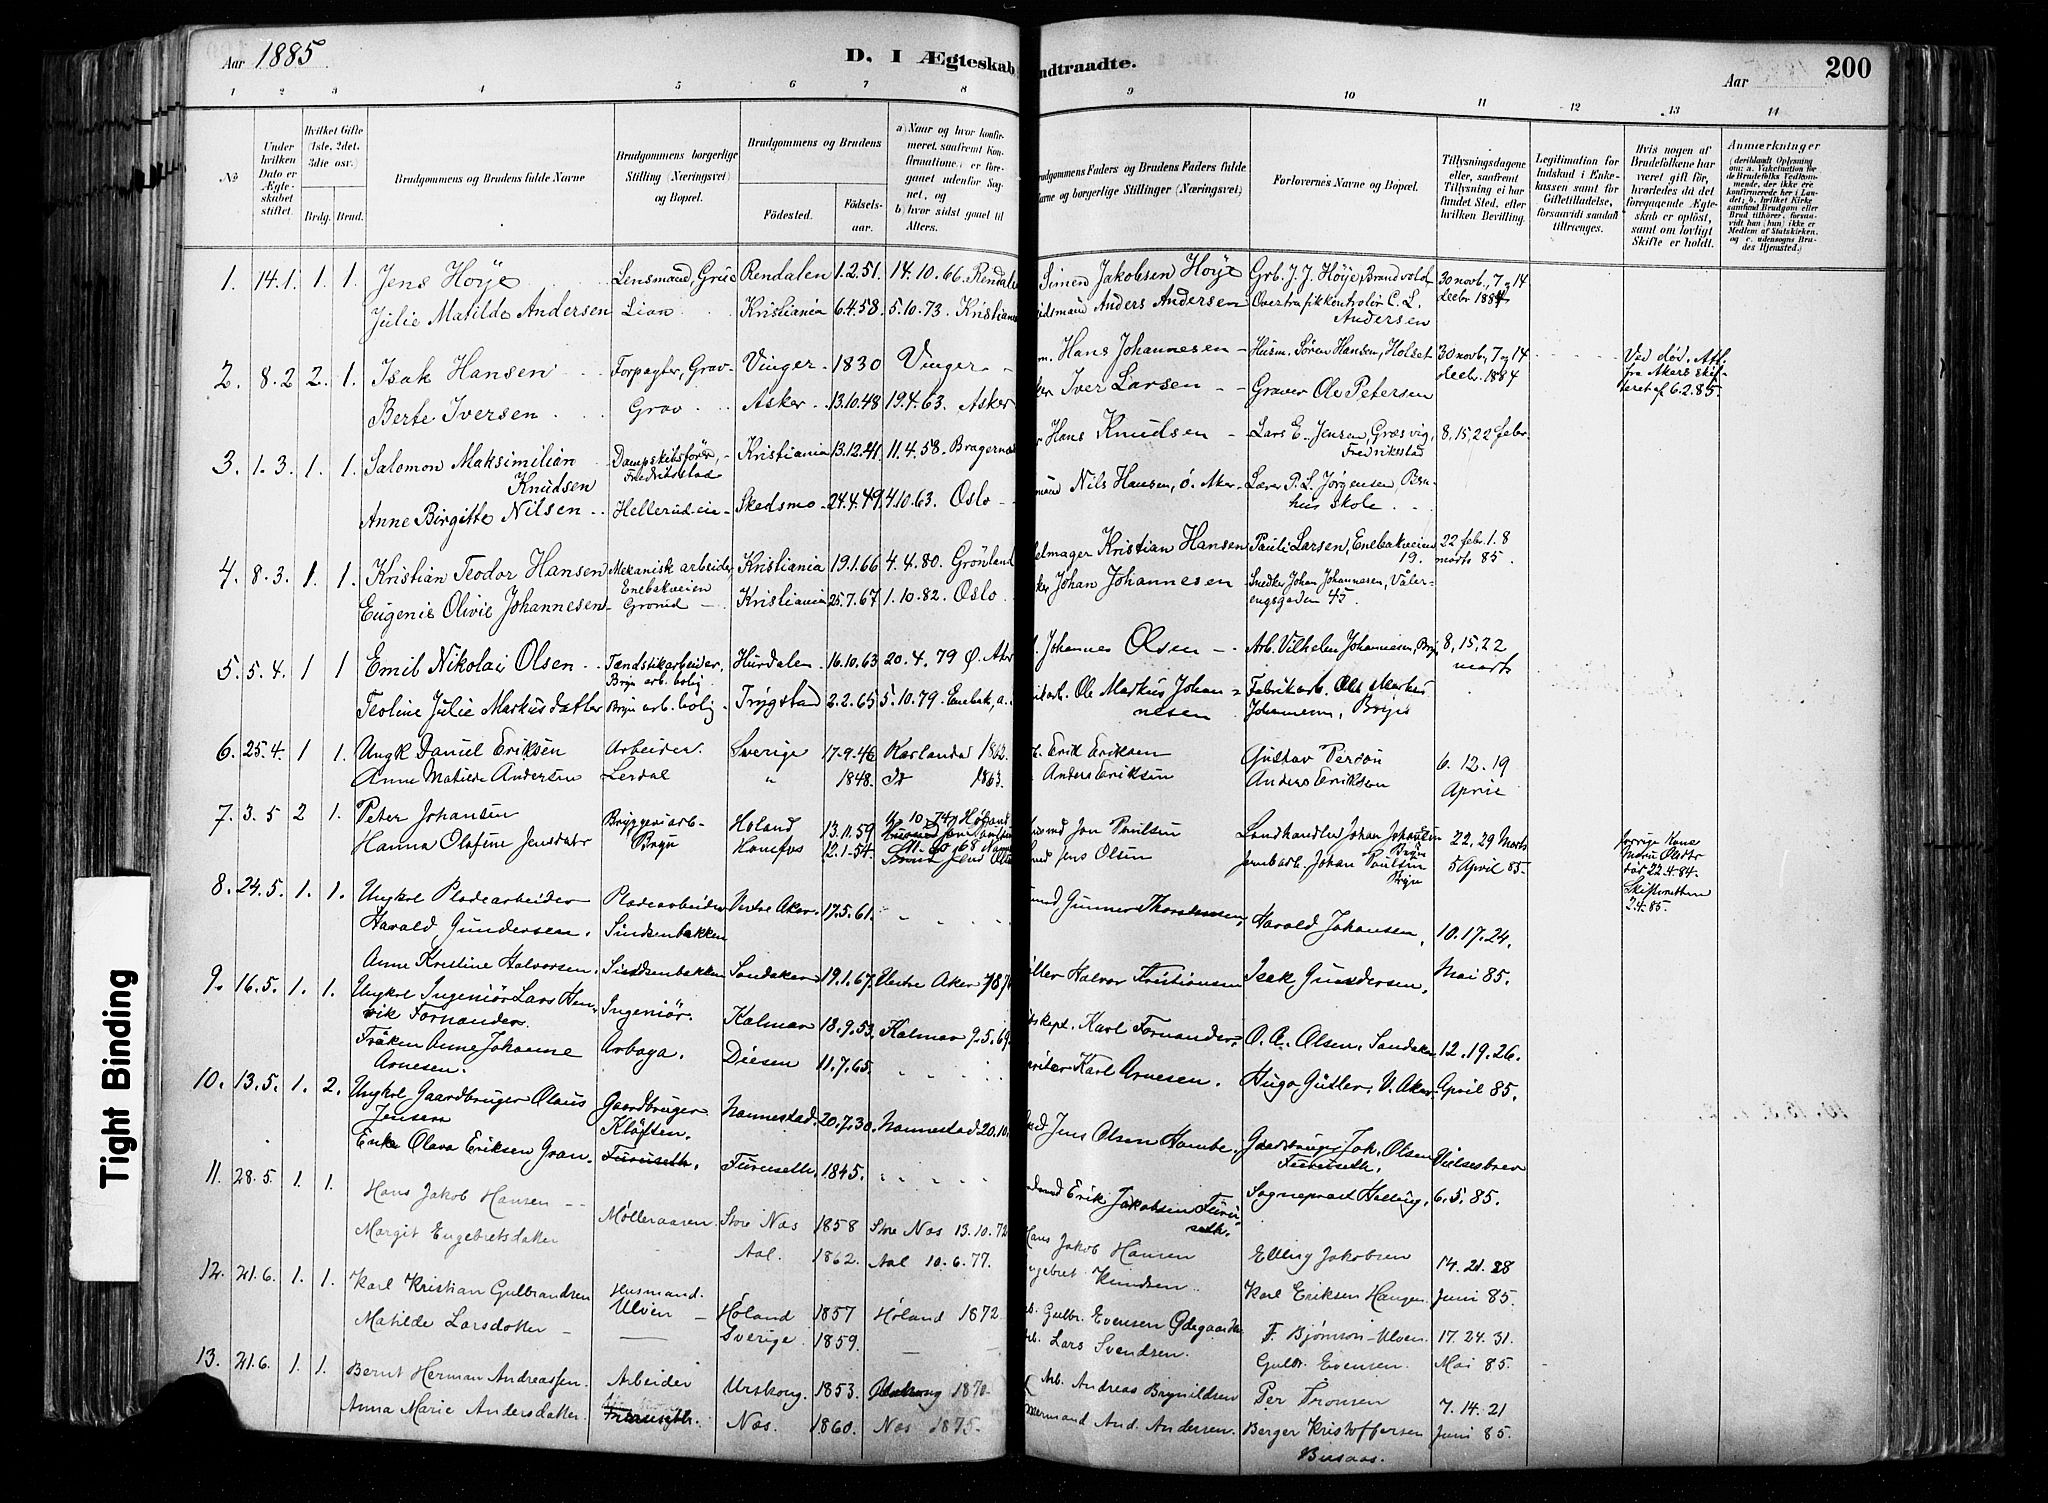 Aar 1885.
D. I Ægteskab
indtraadte.
Aar
200
1 2 3 4 5 6 7 8 9 10 11 12 13 14
No
Under hvilken Dato er Ægteskabet stiftet.
Hvilket Gifte (1ste, 2det, 3die osv.)
Brdg. Brud.
Brudgommens og Brudens fulde Navne
Brudgommens borgerlige Stilling (Næringsvei) og Bopæl.
Brudgommens og Brudens
Fødested.
Fødselsaar.
a) Naar og hvor konfirmeret, saafremt Konfirmationen er foregaaet udenfor Sognet, og
b) hvor sidst gaaet til Alters.
Brudgommens Faders og Brudens Faders fulde Navne og borgerlige Stillinger (Næringsvei)
Forlovernes Navne og Bopæl.
Tillysningsdagene eller, saafremt Tillysning ei har fundet Sted, efter hvilken Bevilling.
Legitimation for Indskud i Enkekassen samt for Giftetilladelse, forsaavidt saadan tiltrænges.
Hvis nogen af Brudefolkene har været gift før, hvorledes da det foregaaende Ægteskab er opløst, samt om lovligt Skifte er holdt.
Anmærkninger
(deriblandt Oplysning om: a. Vakcination for de Brudefolks Vedkommende, der ikke ere konfirmerede her i Landet; b. hvilket Kirkesamfund Brudgom eller Brud tilhører, forsaavidt han (hun) ikke er Medlem af Statskirken, og c. udensogns Brudes Hjemsted.
1. 14.1. 1. 1. Jens Höye Lensmand, Grue Rendalen 1.2.51. 14.10.66. Rendalen Simen Jakobsen Höye Grb. J. J. Höye, Brandvold 30 novb., 7 og 14
Julie Matilde Andersen Lian Kristiania 6.4.58 5.10.73. Kristiania Anders Andersen Overtrafikkontrolör C. L. decbr 1884
Andersen
2. 8.2 2. 1. Isak Hansen Forpagter, Grav Vinger 1830 Vinger Hans Johannesen Husm. Sören Hansen, Holset 30 novb., 7 og 14 Ved död. Att.
Berte Iversen Grav Asker 13.10.48 19.4.63. Asker Iver Larsen Graver Ole Petersen decbr. 1884 fra Akers skifteret af 6.2.85.
3. 1.3. 1. 1. Salomon Maksimilian Dampskibsförer, Kristiania 13.12.41. 11.4.58. Bragernæs Hans Knudsen Lars E. Jensen, Græsvig, 8, 15, 22 febr.
Knudsen Fredrikstad Fredrikstad
Anne Birgitte Nilsen Hellerudeie Skedsmo 24.4.49 4.10.63. Oslo Nils Hansen, ö. Aker Lærer P. L. Jörgensen, Bryn
hus skole
4. 8.3. 1. 1. Kristian Teodor Hansen Mekanisk arbeider, Kristiania 19.1.66 4.4.80. Grönland Kristian Hansen Pauli Larsen, Enebakveien 22 febr. 1. 8
Enebakveien 19. marts 85.
Eugenie Olivie Johannesen Grorud Kristiania 25.7.67 1.10.82. Oslo Johan Johannesen Snedker Johan Johannesen, Våler-
engsgaden 45
5. 5.4. 1 1 Emil Nikolai Olsen Tændstikarbeider, Hurdalen 16.10.63 20.4.79 Ø. Aker Johannes Olsen Arb. Vilhelm Johannesen, Bryn 8, 15, 22
Bryn arb. bolig marts
Teoline Julie Markusdatter Bryn arb. bolig Trygstad 2.2.65 5.10.79. Enebak, a. Ole Markus Johan- Fabrikarb. Ole Markus
nesen Johannesen, Bryn
6. 25.4. 1 1. Ungk Daniel Eriksen Arbeider. Sverige 17.9.46 Karlanda 1862. Erik Eriksen Gustav Persson 6. 12. 19
Anne Matilde Andersen Lerdal " 1848. Do 1863. Anders Eriksen Anders Eriksen April
7. 3.5 2 1. Peter Johansen Bryggeriarb- Høland 13.11.59 Jon Poulsen Landhandler Johan Johansen 22, 29 Marts
Hanna Olafine Jensdatr Bryn Hønefos 12.1.54. Jens Olsen Jernbarb. Johan Poulsen 5 April 85. 
Bryn
død 22.4.84.
Skifteretten
2.4.85.
8. 24.5. 1. 1. Ungkrl Pladearbeider Pladearbeider Vestre Aker 17.5.61.
Harald Gundersen. Sindsenbakken Harald Johansen, 10.17.24.
Anne Kristine Halvorsen. Sindsenbakken Sandaker 19.1.67. Vestre Aker Halvor Kristiansen Isak Gundersen. Mai 85.
9. 16.5. 1. 1. Ungkrl Ingeniør Lars Hen-
rik Fornander. Ingeniør. Kalmar 18.9.53. Kalmar 9.5.69 Karl Fornander O. A. Olsen. Sandaker 12.19.26.
Frøken Anne Johanne Arboga. Diesen 11.7.65. Karl Arnesen. Hugo Gütler. V. Aker April 85.
Arnesen.
10. 13.5. 1. 2. Ungkrl Gaardbruger Olaus Gaardbruger Nannestad 20.7.30. Nannestad 20.10. Jens Olsen Gaardbruger Joh. Olsen Vielsesbrev
Jensen Kløften. Furuseth.
Enke Olava Eriksen Gran. Furuseth. Furuseth. 1845. Erik Jakobsen Furu- Sogneprest 6.5.85.
seth.
11. 28.5. 1. 1. Hans Jakob Hansen Mølleraasen Store Næs 1858 Store Næs 13.10.72 Hans Jakob Hansen Elling Jakobsen 14. 21. 28
Margit Engebretsdatter Aal. 1862. Aal 10.6.77. Knudsen Karl Eriksen Haugen Juni 85.
12. 21.6. 1. 1. Karl Kristian Gulbrandsen Husmand. Høland 1857 Høland 1872 Gulbr. Evensen F. Bjørnson Ulven 17.24.31.
Ulven
Matilde Larsdatter Sverige. 1859. Lars Svendsen. Gulbr. Evensen. Mai 85.
13. 21.6. 1. 1. Bernt Herman Andreassen. Arbeider Urskoug. 1853. Urskoug 1870. Arb. Andreas Brynildsen Per Tronsen 7. 14. 21
Anna Marie Andersdatter. Furuseth. Næs. 1860. Næs 1875. And. Andersen. Berger Kristoffersen Juni 85.
Tight Binding